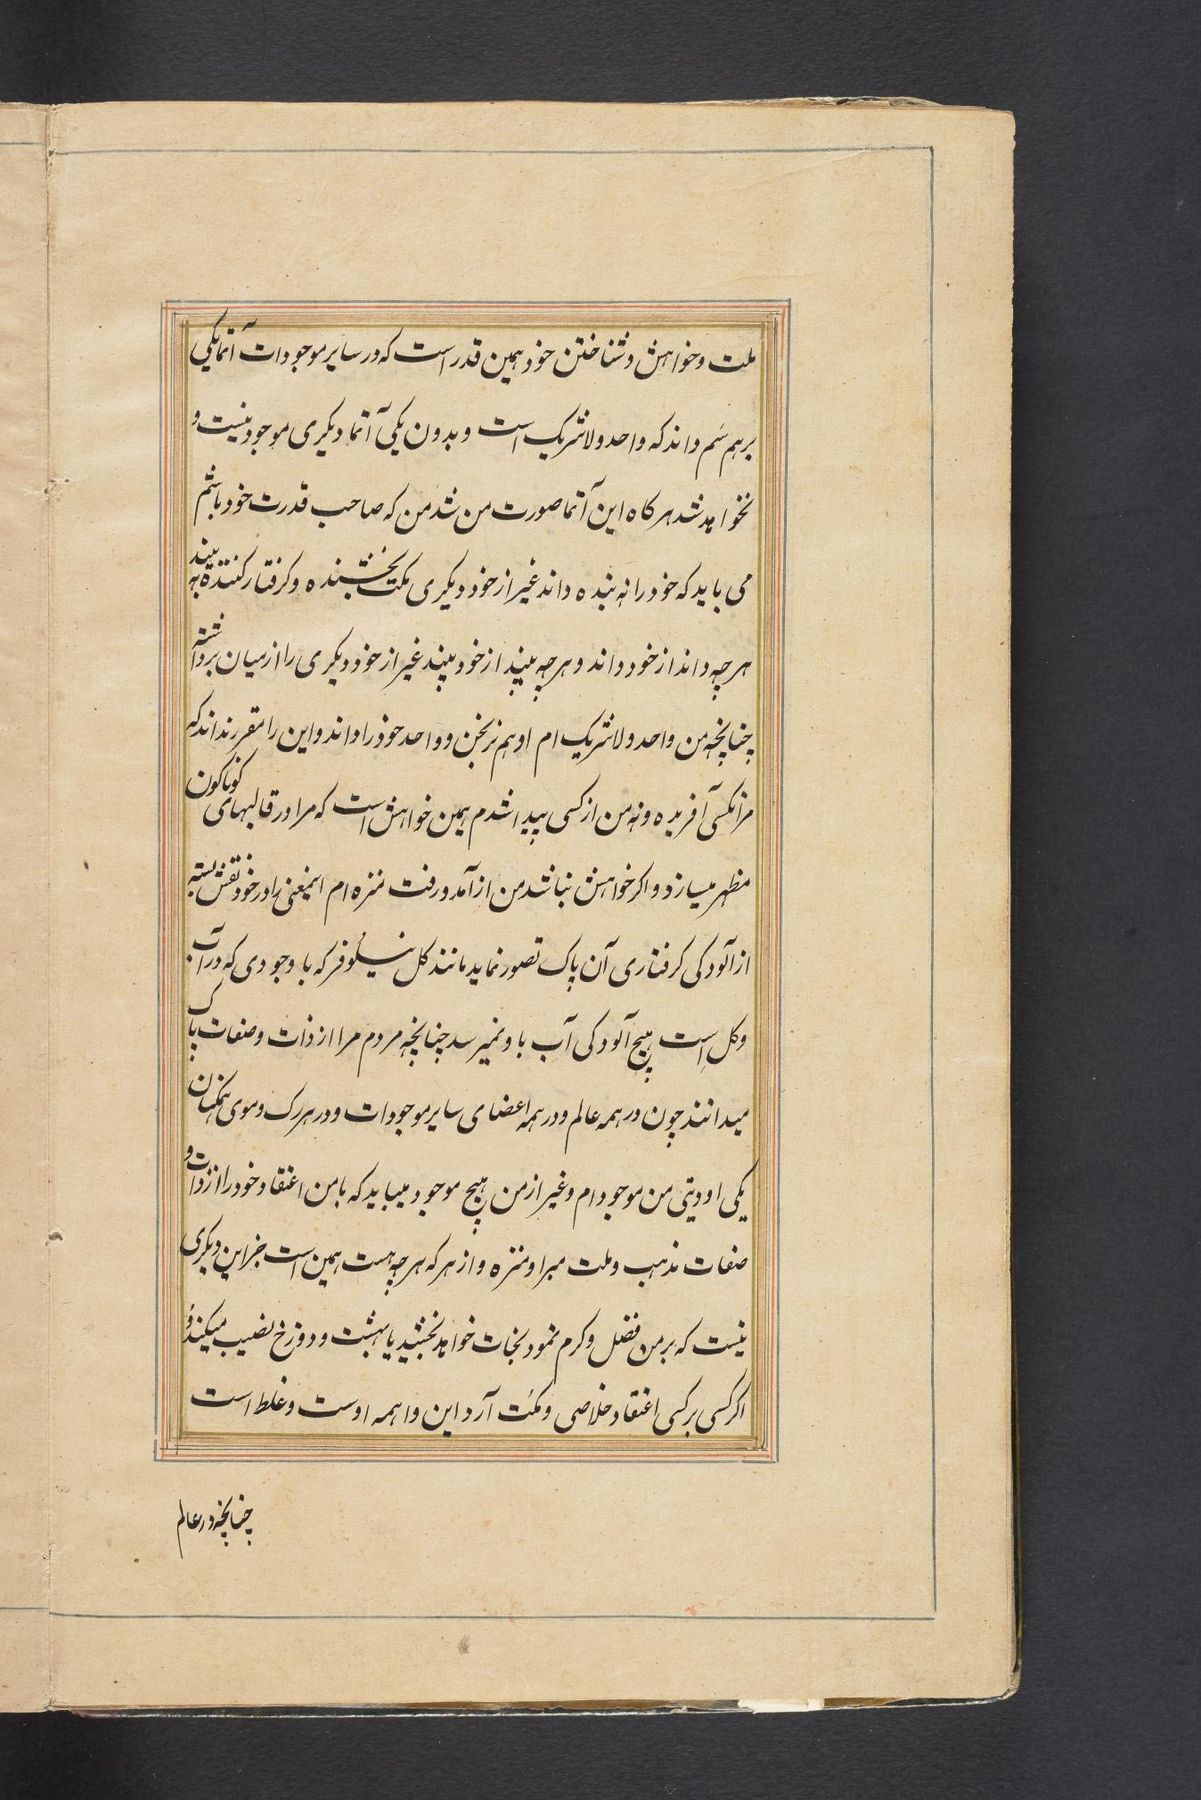 ملت و خواهش و شناختن خود همین قدر است که در سایر موجودات آتما یکی
برهم سَم داند که واحد و لاشریک است و بدون یکی آتما دیکری موجود نیست و
نخواهد شد هرکاه این آتما صورت من شد من که صاحب قدرت خود باشم
می باید که خود را نه بنده داند غیر از خود دیکری مکت بخشنده و کرفتار کننده نه بیند
هرچه داند از خود داند و هرچه بیند از خود بیند غیر از خود دیکری را از میان برداشته
چنانچه من واحد و لاشریک ام او هم نرنجن و واحد خود را داند و این را مقرر داند که
مرا نکسی آفریده و نه من از کسی پیدا شدم همین خواهش است که مرا در قالبهای کوناکون
مظهر میسازد و اکر خواهش نباشد من از آمد و رفت منزه ام اینمعنی را در خود نقش بسته
از آلودکی کرفتاری آن پاک تصور نماید مانند کل نیلوفر که با وجودی که در آب
و کل است هیچ آلودکی آب باو نمیرسد چنانچه مردم مرا از ذات و صفات پاک
میدانند چون در همه عالم و در همه اعضای سایر موجودات و در هر رک و موی همکنان
یکی اودیتی من موجودام و غیر از من هیچ موجود میباید که بامن اعتقاد خود را از ذات و
صفات مذهب و ملت مبرا و منزه و از هر که هرچه هست همین است جز این دیکری
نیست که بر من فضل و کرم نمود نجات خواهد بخشید یا بهشت و دوزخ نصیب میکند و
اکر کسی بر کسی اعتقاد خلاصی و مکت آرد این واهمه اوست و غلط است
چنانچه در عالم